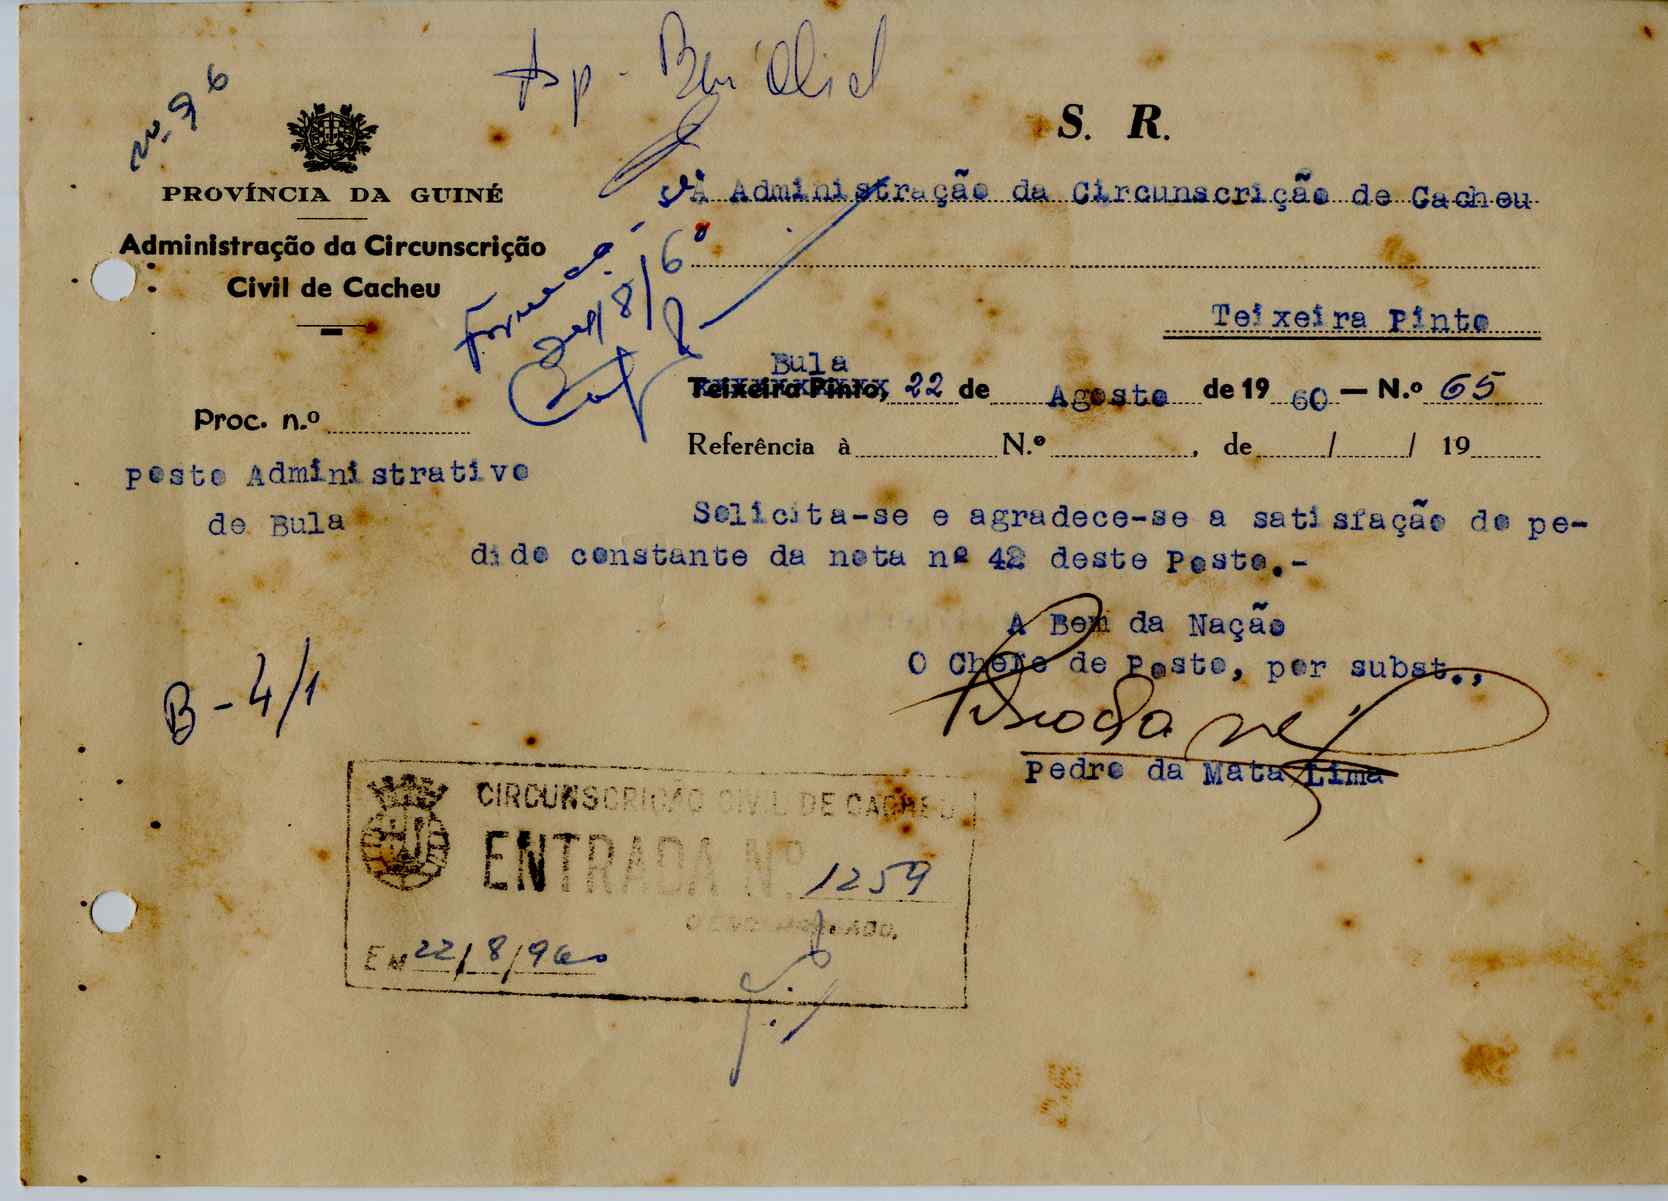 nº 96
S. R.
PROVÍNCIA DA GUINÉ
Administração da Circunscrição
Civil de Cacheu
À Administração da Circunscrição de Cacheu
Teixeira Pinto
Bula
Teixeira Pinto, 22 de Agosto de 1960 — N.º 65
Proc. n.º
Referência à N.º , de / / 19
Posto Administrativo
de Bula
Solicita-se e agradece-se a satisfação do pe-
dido constante da nota nº 42 deste Posto.-
A Bem da Nação
O Chefe de Posto, por subst.,
Pedro da Mata Lima
B-4/1
CIRCUNSCRIÇÃO CIVIL DE CACHEU
ENTRADA Nº. 1259
EM 22/8/960